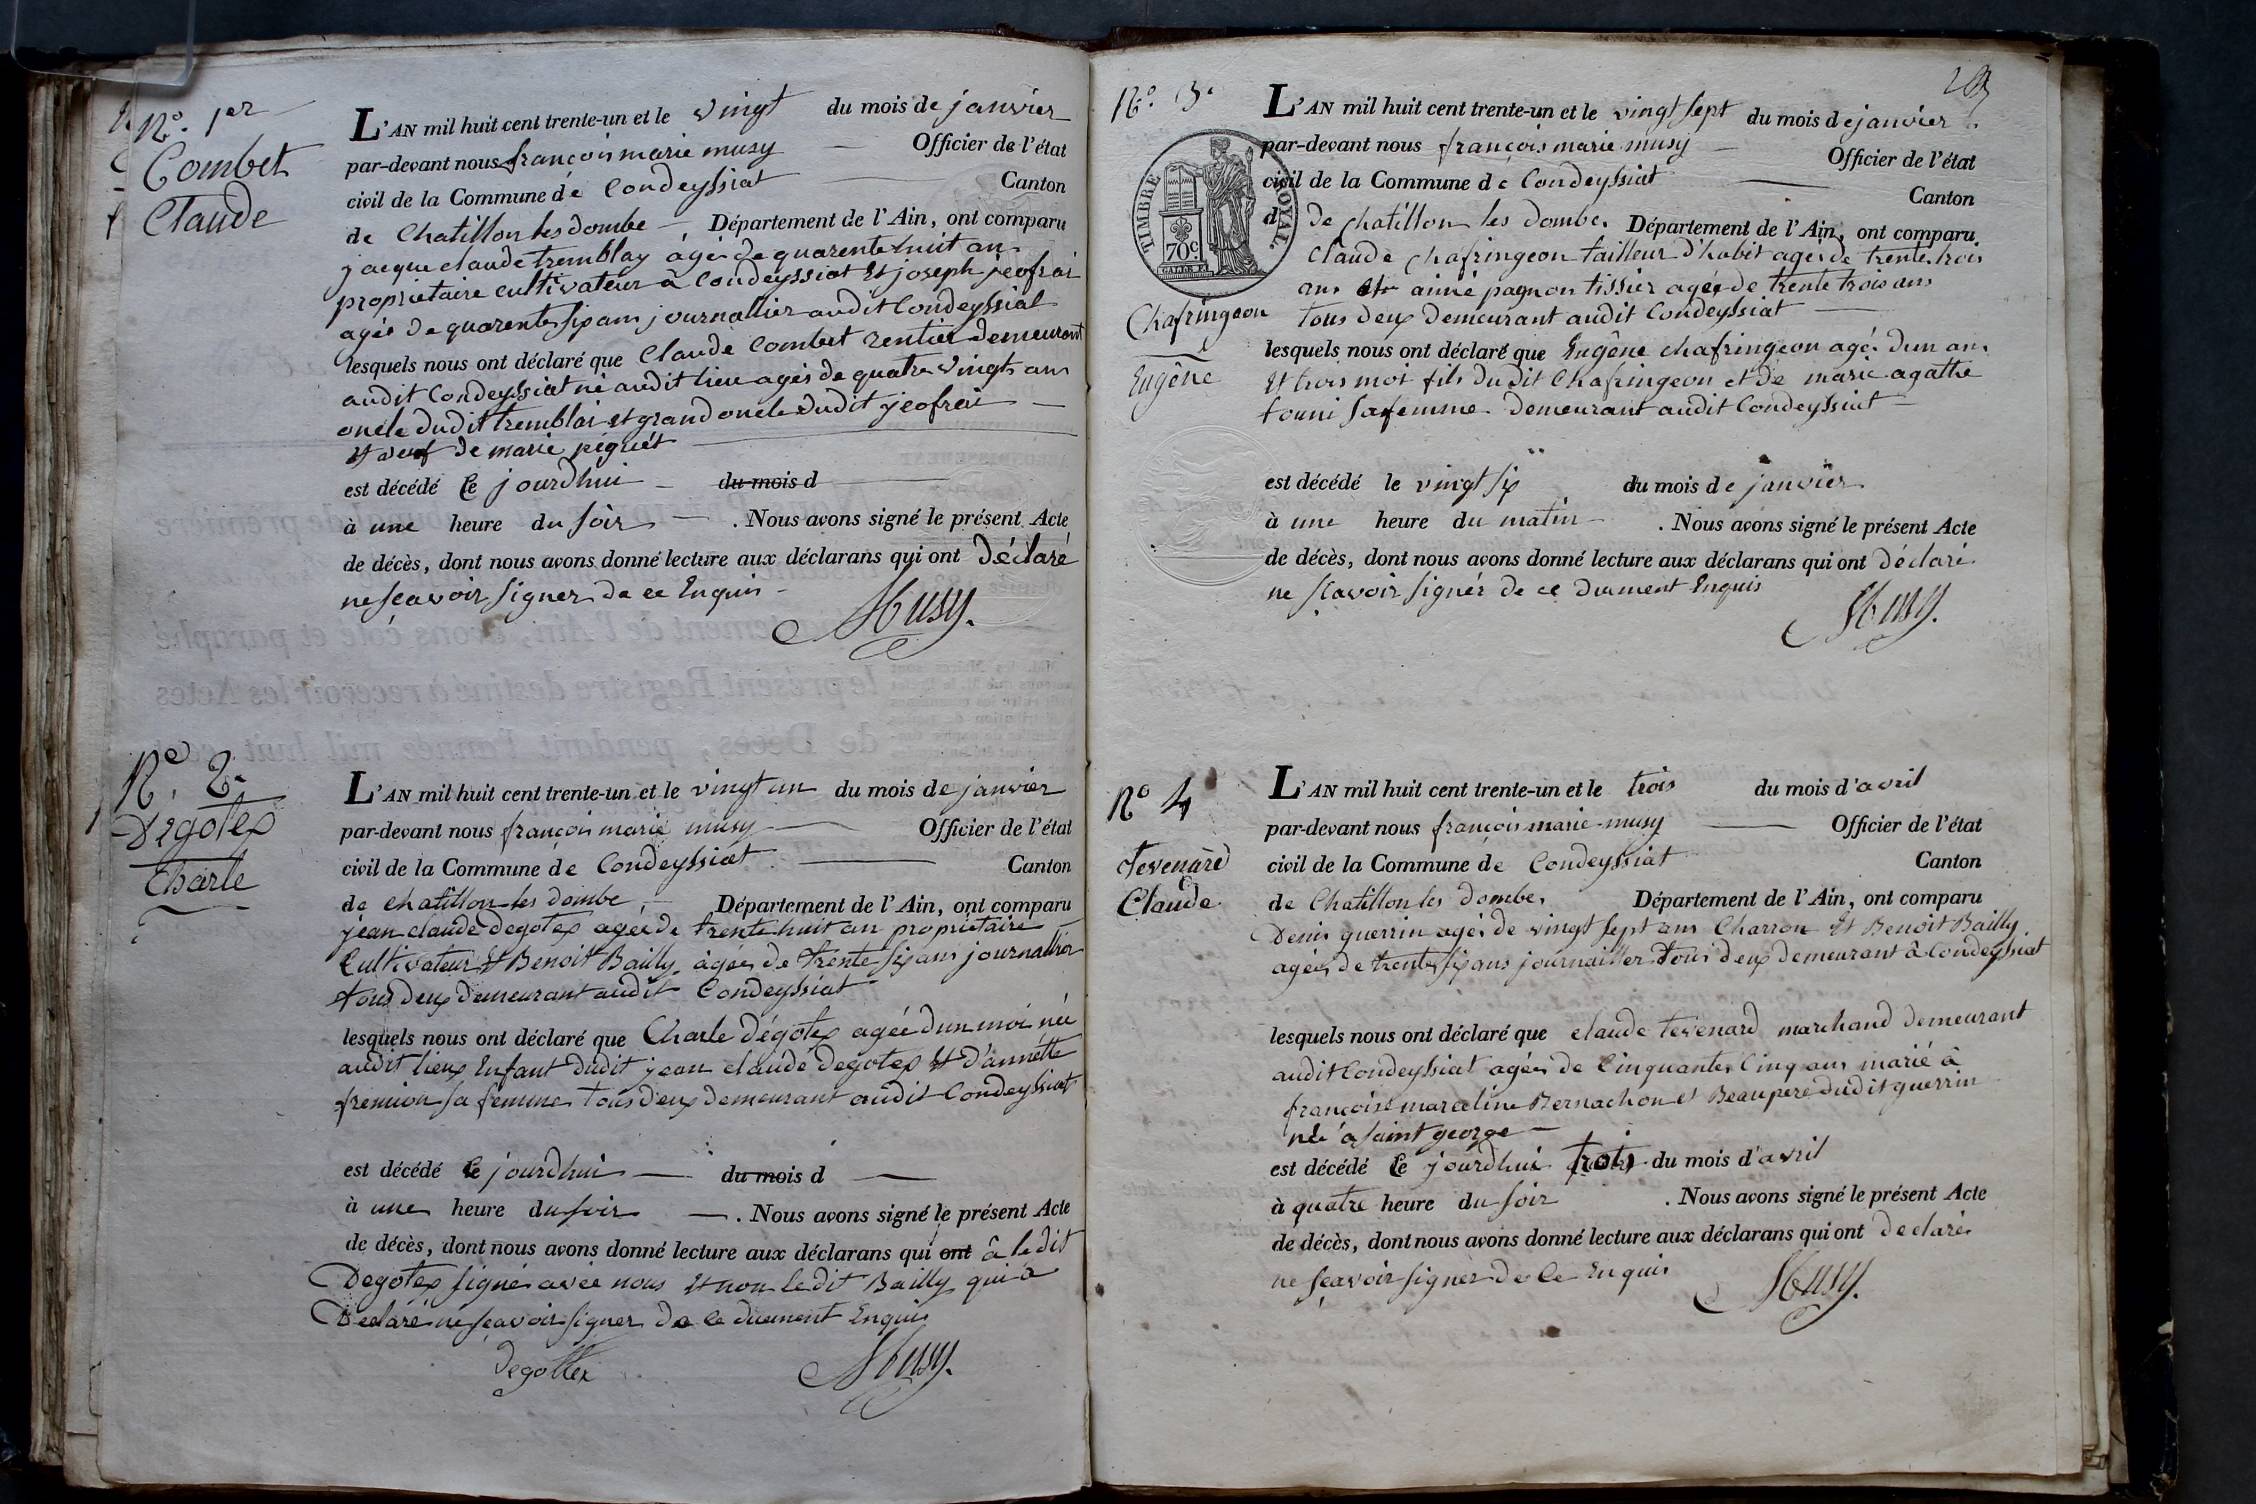 N.º 1er
Combet
Claude
L'AN mil huit cent trente-un et le vingt du mois de janvier
par-devant nous françois marie musy — Officier de l'état
civil de la Commune de Condeyssiat — Canton
de Chatillon les dombe — Département de l'Ain, ont comparu
jacque claude tremblay âgé de quarente huit an
proprietaire cultivateur à Condeyssiat Et joseph jeofrai
agés de quarente six ans journallier audit Condeyssiat
lesquels nous ont déclaré que Claude Combet rentier demeurant
audit Condeyssiat né audit lieu agés de quatre vingts ans
oncle dudit tremblai et grand oncle dudit jeofrai —
Et veuf de marie peguét
est décédé Ce jourdhui — du mois d —
à une heure du soir — . Nous avons signé le présent Acte
de décès, dont nous avons donné lecture aux déclarans qui ont déclaré
ne sçavoir signer de ce Enquis -
Musy.
Nº. 2.
Dégotex
Charle
L'AN mil huit cent trente-un et le vingt un du mois de janvier
par-devant nous françois marie musy — Officier de l'état
civil de la Commune de Condeyssiat — Canton
de chatillon les dombe — Département de l'Ain, ont comparu
jean claude Degotex agée de trente huit an propriétaire
Cultivateur Et Benoit Bailly âgés de trente six ans journallier
tous deux demeurant audit Condeyssiat
lesquels nous ont déclaré que Charle Dégotex agée dun moi née
audit lieux Enfant dudit jean claude degotex Et d'annette
fremion sa femme tous deux demeurant audit Condeyssiat
est décédé Ce jourdhui — du mois d —
à une heure du soir — . Nous avons signé le présent Acte
de décès, dont nous avons donné lecture aux déclarans qui ont â le dit
Degotex signé avec nous Et non ledit Bailly qui a
Déclaré ne sçavoir signer de ce duement Enquis
degottex Musy.
203
Nº. 3.
TIMBRE ROYAL.
70 c.
Chafringeon
Eugêne
L'AN mil huit cent trente-un et le vingt sept du mois de janvier
par-devant nous françois marie musy — Officier de l'état
civil de la Commune de Condeyssiat — Canton
d de chatillon les dombe. Département de l'Ain, ont comparu
Claude chafringeon tailleur d'habit agés de trente trois
ans aimé pagnon tissier agés de trente trois ans
tous deux demeurant audit Condeyssiat —
lesquels nous ont déclaré que Eugêne chafringeon agé dun an
Et trois moi fils dudit Chafringeon et de marie agathe
touni sa femme demeurant audit Condeyssiat —
est décédé le vingt six du mois de janvier
à une heure du matin — . Nous avons signé le présent Acte
de décès, dont nous avons donné lecture aux déclarans qui ont déclaré
ne sçavoir signér de ce duement Enquis
Musy.
Nº 4
tevenard
Claude
L'AN mil huit cent trente-un et le trois du mois d'avril
par-devant nous françois marie musy — Officier de l'état
civil de la Commune de Condeyssiat Canton
de Chatillon les dombe. Département de l'Ain, ont comparu
Denis guerrin agés de vingt sept ans Charron Et Benoit Bailly
agés de trente six ans journailler tous deux demeurant â Condeyssiat
lesquels nous ont déclaré que claude tevenard marchand demeurant
audit Condeyssiat agés de Cinquante Cinq ans marié à
françoise marceline Bernachon et Beaupere dudit guerrin
né à saint george —
est décédé Ce jourdhui trois du mois d'avril
à quatre heure du soir . Nous avons signé le présent Acte
de décès, dont nous avons donné lecture aux déclarans qui ont declaré
ne sçavoir signer de Ce Enquis Musy.